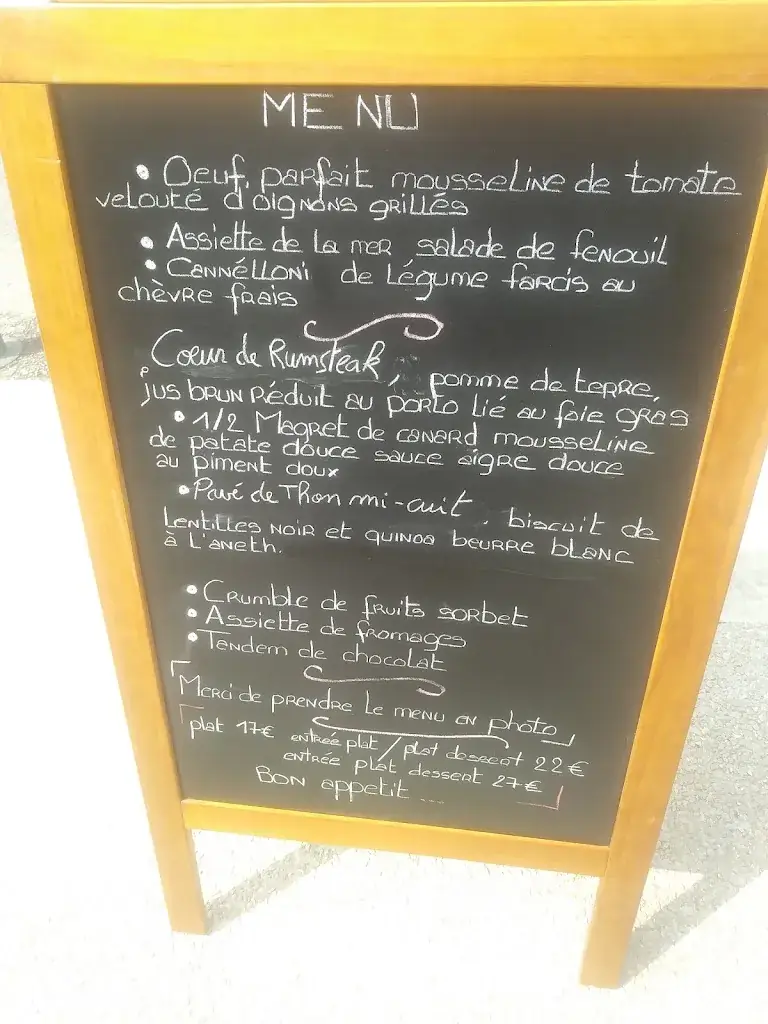 MENU
• Oeuf, parfait mousseline de tomate
velouté d'oignons grillés
• Assiette de la mer salade de fenouil
• Cannélloni de légume farcis au
chèvre frais
Coeur de Rumsteak, pomme de terre,
jus brun réduit au porto lié au foie gras
• 1/2 Magret de canard mousseline
de patate douce sauce aigre douce
au piment doux
• Pavé de Thon mi-cuit, biscuit de
lentilles noir et quinoa beurre blanc
à l'aneth.
• Crumble de fruits sorbet
• Assiette de fromages
• Tendem de chocolat
Merci de prendre le menu en photo
plat 17€ entrée plat / plat dessert 22€
entrée plat dessert 27€
Bon appetit ...